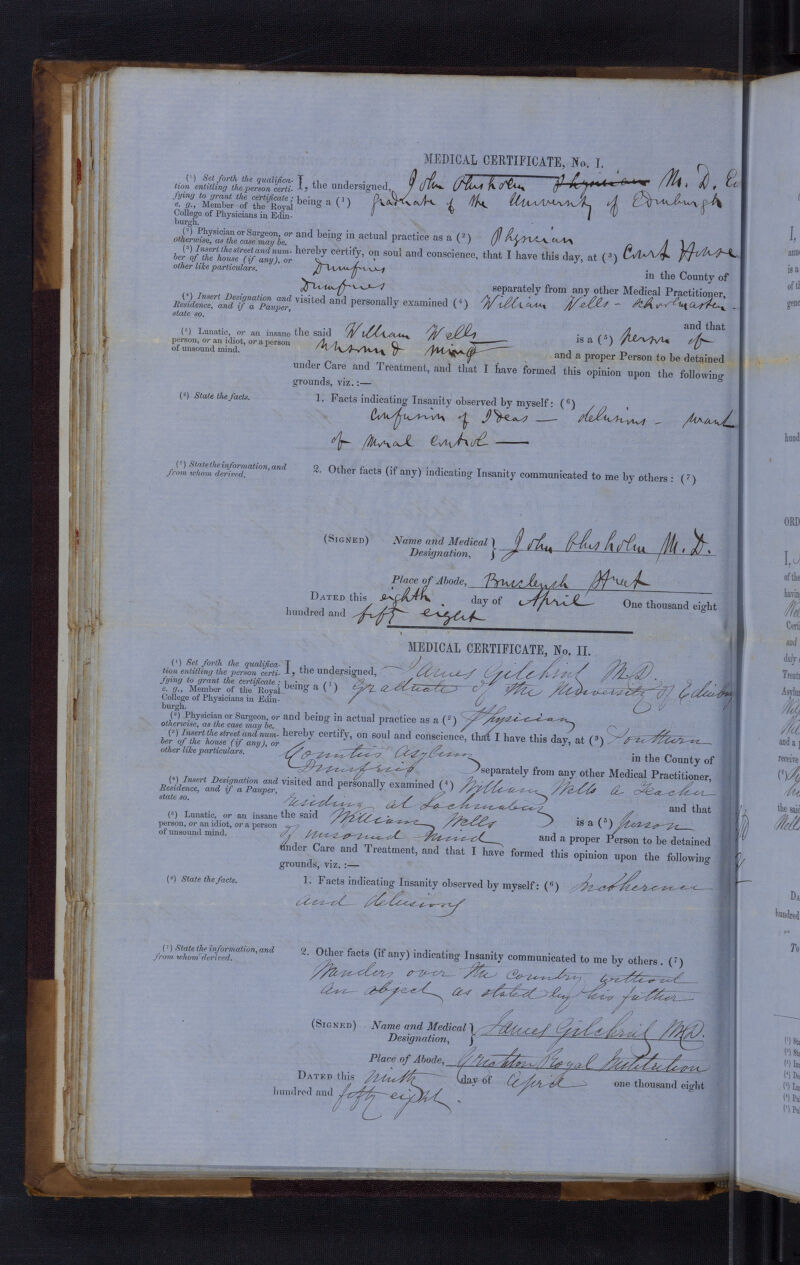 MEDICAL CERTIFICATE, No. I.
(1) Set forth the qualifica-
tion entitling the person certi-
fying to grant the certificate;
e. g., Member of the Royal
College of Physicians in Edin-
burgh.
I, the undersigned, John Chisholm Physician M. D. Ed
being a (1) graduate of the University of Edinburgh
(2) Physician or Surgeon, or
otherwise, as the case may be.
and being in actual practice as a (2) Physician
(3) Insert the street and num-
ber of the house (if any), or
other like particulars.
hereby certify, on soul and conscience, that I have this day, at (3) Court House
Dumfries in the County of
Dumfries separately from any other Medical Practitioner,
(4) Insert Designation and
Residence, and if a Pauper,
state so.
visited and personally examined (4) William Wells - Schoolmaster -
and that
(5) Lunatic, or an insane
person, or an idiot, or a person
of unsound mind.
the said William Wells is a (5) person of
unsound mind and a proper Person to be detained
under Care and Treatment, and that I have formed this opinion upon the following
grounds, viz. :—
(6) State the facts.
1. Facts indicating Insanity observed by myself: (6)
Confusion of Ideas — delusions - want
of moral control —
(7) State the information, and
from whom derived.
2. Other facts (if any) indicating Insanity communicated to me by others : (7)
(SIGNED) Name and Medical Designation, } John Chisholm M. D.
Place of Abode, Buccleuch Street
DATED this eighth day of April One thousand eight
hundred and fifty eight
MEDICAL CERTIFICATE, No. II.
(1) Set forth the qualifica-
tion entitling the person certi-
fying to grant the certificate;
e. g., Member of the Royal
College of Physicians in Edin-
burgh.
I, the undersigned, James Gilchrist M.D.
being a (1) Graduate of the University of Edinbu
(2) Physician or Surgeon, or
otherwise, as the case may be.
and being in actual practice as a (2) Physician
(3) Insert the street and num-
ber of the house (if any), or
other like particulars.
hereby certify, on soul and conscience, that I have this day, at (3) Southern
Counties Asylum in the County of
Dumfries separately from any other Medical Practitioner,
(4) Insert Designation and
Residence, and if a Pauper,
state so.
visited and personally examined (4) William Wells a Teacher
residing at Lochmaben and that
(5) Lunatic, or an insane
person, or an idiot, or a person
of unsound mind.
the said William Wells is a (5) person
of unsound mind and a proper Person to be detained
under Care and Treatment, and that I have formed this opinion upon the following
grounds, viz. :—
(6) State the facts.
1. Facts indicating Insanity observed by myself: (6) Incoherence
and delusions
(7) State the information, and
from whom derived.
2. Other facts (if any) indicating Insanity communicated to me by others. (7)
Wanders over the country without
an object as stated by his father
(SIGNED) Name and Medical Designation, } James Gilchrist M.D.
Place of Abode, Crichton Royal Institution
DATED this ninth day of April one thousand eight
hundred and fifty eight.